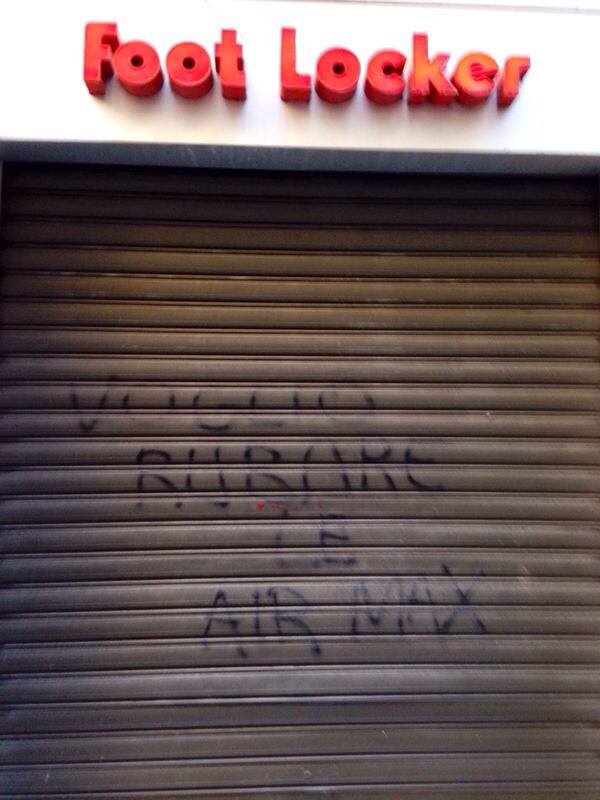 Foot Locker
VOGLIO
RUBARE
LE
AIR MAX